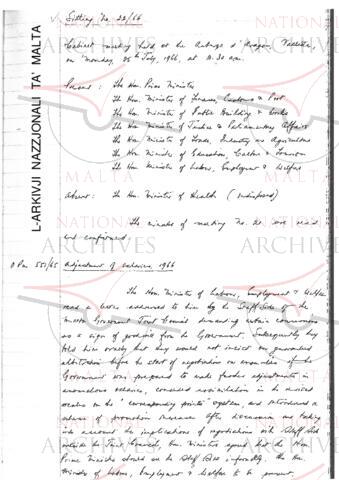 Sitting No. 22/66
Cabinet meeting held at the Auberge d'Aragon, Valletta,
on Monday, 25th July, 1966, at 11.30 a.m.
Present: The Hon. Prime Minister
The Hon. Minister of Finance, Customs & Port
The Hon. Minister of Public Building & Works
The Hon. Minister of Justice & Parliamentary Affairs
The Hon. Minister of Trade, Industry and Agriculture
The Hon. Minister of Education, Culture & Tourism
The Hon. Minister of Labour, Employment & Welfare
Absent: The Hon. Minister of Health (indisposed)
The minutes of meeting No. were read
and confirmed.
551/65 Adjustment of salaries, 1966
The Hon. Minister of Labour, Employment & Welfare
read a letter addressed to him by the Staff Side of the
Malta Government Joint Council demanding certain concessions
as a sign of goodwill from the Government. Subsequently they
told him orally that they would not insist on
arbitration before the start of negotiations on if the
Government was prepared to make further adjustments in
anomalous salaries, in the revised
scales on the "corresponding points" system, and introduced a
scheme of promotion . After discussion and taking
into account the implications of negotiations with Staff Side
outside the Joint Council, the Minister agreed that the Hon.
Prime Minister should see the Staff Side informally. The Hon.
Minister of Labour, Employment & Welfare to be present.
L-ARKIVJI NAZZJONALI TA' MALTA
NATIONAL
ARCHIVES
MALTA